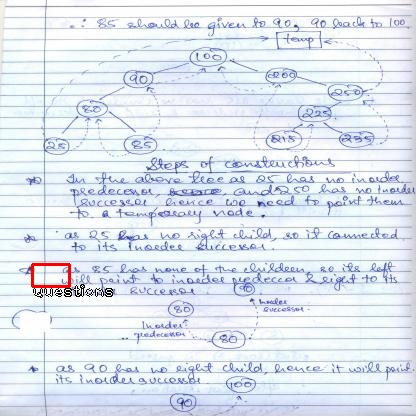 ∴ 85 should be given to 90, 90 back to 100.
temp
100
90
200
80
250
225
25
85
215
235
Steps of constructions
In the above tree as 25 has no inorder
predecessor, and 250 has no inorder
successor, hence we need to point them
to a temporary node.
as 25 has no right child, so it connected
to its inorder successor.
as 85 has none of the children, so its left
will point to inorder predeccor & right to its
Questions
successor.
90
80
Inorder
successor.
Inorder
predecessor
80
as 90 has no right child, hence it will point
its inorder successor
100
90